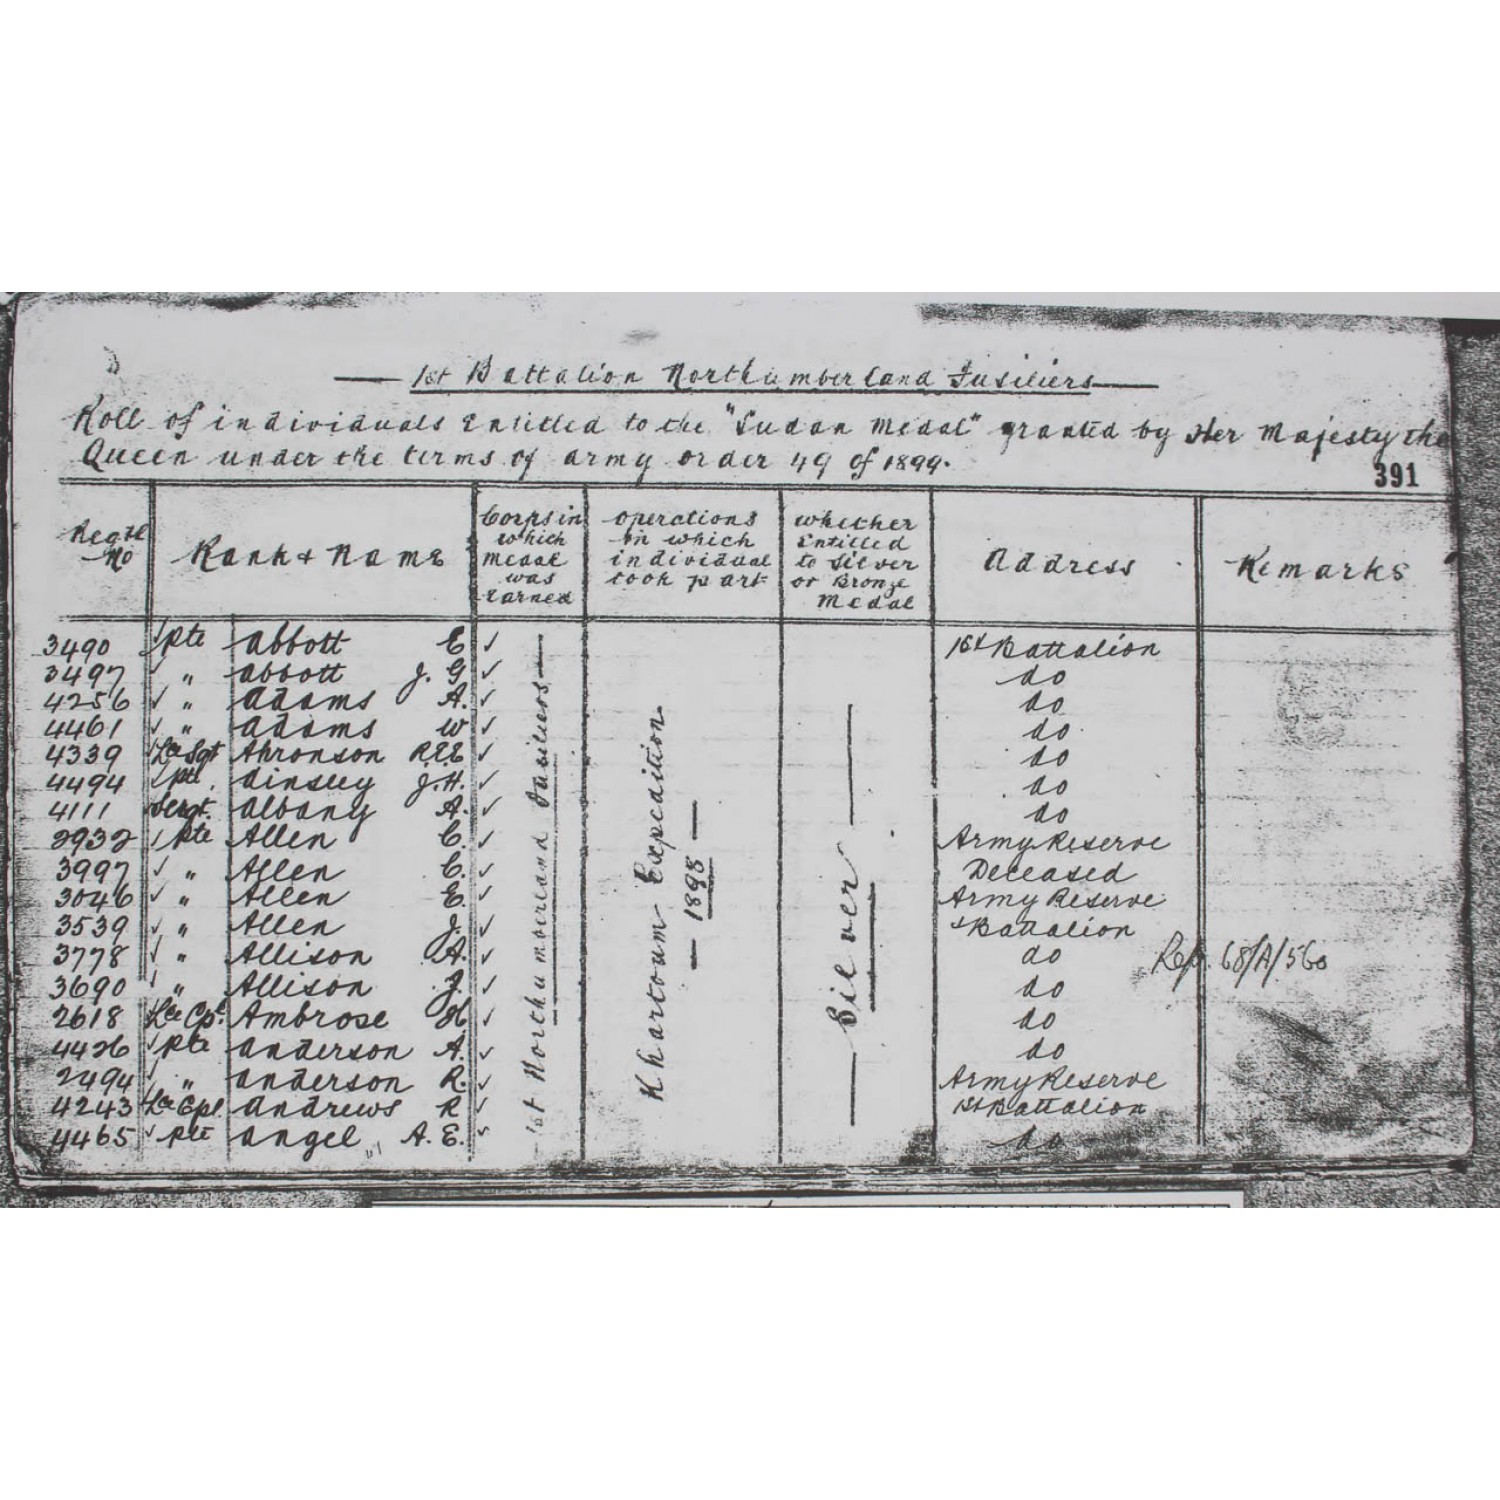 1st Battalion Northumberland Fusiliers
Roll of individuals Entitled to the "Sudan Medal" granted by Her Majesty the
Queen under the terms of army order 49 of 1899.
391
Regtl No | Rank & Name | Corps in which medal was Earned | operations in which individual took part | whether Entitled to Silver or Bronze Medal | Address | Remarks
3490 Pte Abbott E 1st Battalion
3497 " Abbott J. G do
4256 " Adams A. do
4461 " Adams W do
4339 Lce Sgt Ahronson R.E.E do
4494 Pte. Ainsley J.H. do
4111 Sergt. Albany A. do
2932 Pte Allen C. Army Reserve
3997 " Allen C. Deceased
3046 " Allen E. Army Reserve
3539 " Allen J. Battalion
3778 " Allison A. do Rep. 68/A/560
3690 " Allison J. do
2618 Lce Cpl. Ambrose H do
4426 Pte Anderson A. do
2494 " Anderson R. Army Reserve
4243 Lce Cpl Andrews R 1st Battalion
4465 Pte Angel A. E. do
1st Northumberland Fusiliers
Khartoum Expedition
1898
Silver